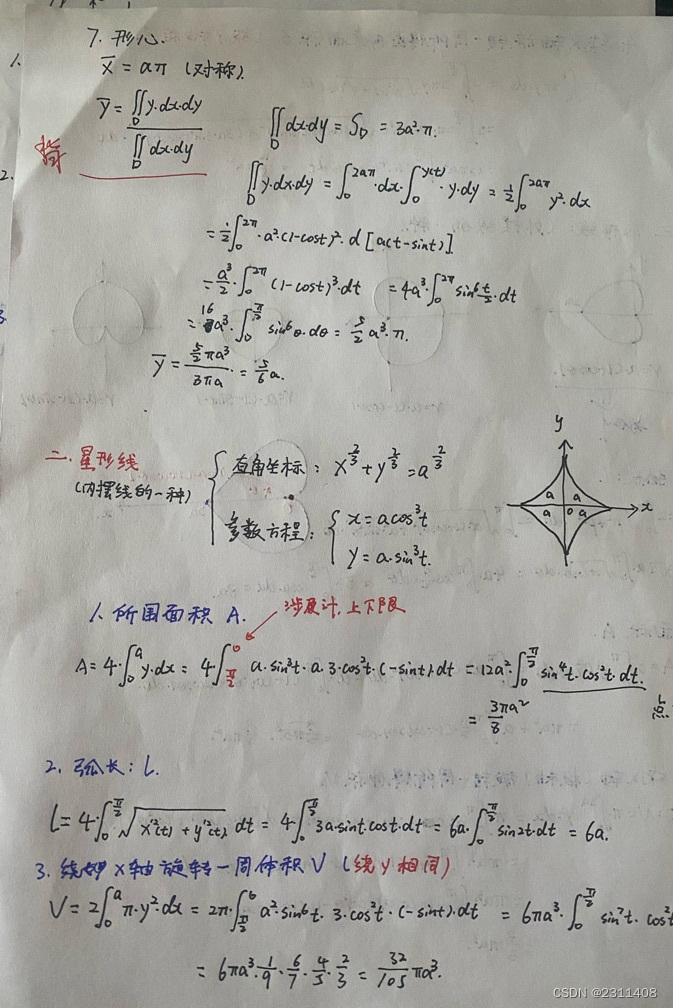 7. 形心.
1.
x̄ = aπ (对称).
ȳ = ∬_D y·dx·dy / ∬_D dx·dy
∬_D dx·dy = S_D = 3a²·π.
2.
∬_D y·dx·dy = ∫_0^{2aπ}·dx·∫_0^{y(t)}·y·dy = 1/2 ∫_0^{2aπ} y²·dx
= 1/2 ∫_0^{2π}·a²·(1-cost)²·d[a(t-sint)]
= a³/2·∫_0^{2π} (1-cost)³·dt = 4a³·∫_0^{2π} sin⁶ t/2·dt
= 16a³·∫_0^{π/2} sin⁶θ·dθ = 5/2 a³·π.
ȳ = (5/2 πa³)/(3πa) = 5/6 a.
二. 星形线
(内摆线的一种)
直角坐标: x^{2/3} + y^{2/3} = a^{2/3}
参数方程: { x = acos³t
y = a·sin³t.
y
a a
a o a
x
1. 所围面积 A.
涉及计, 上下限
A = 4·∫_0^a y·dx = 4∫_{π/2}^0 a·sin³t·a·3·cos²t·(-sint)·dt = 12a²·∫_0^{π/2} sin⁴t·cos²t·dt.
= 3πa²/8
2. 弧长: L.
L = 4·∫_0^{π/2} √(x'²(t) + y'²(t)) dt = 4∫_0^{π/2} 3a·sint·cost·dt = 6a·∫_0^{π/2} sin2t·dt = 6a.
3. 绕 x轴旋转一周体积 V (绕y相同)
V = 2∫_0^a π·y²·dx = 2π·∫_{π/2}^0 a²·sin⁶t·3·cos²t·(-sint)·dt = 6πa³·∫_0^{π/2} sin⁷t·cos²
= 6πa³·1/9·6/7·4/5·2/3 = 32/105 πa³.
CSDN @2311408